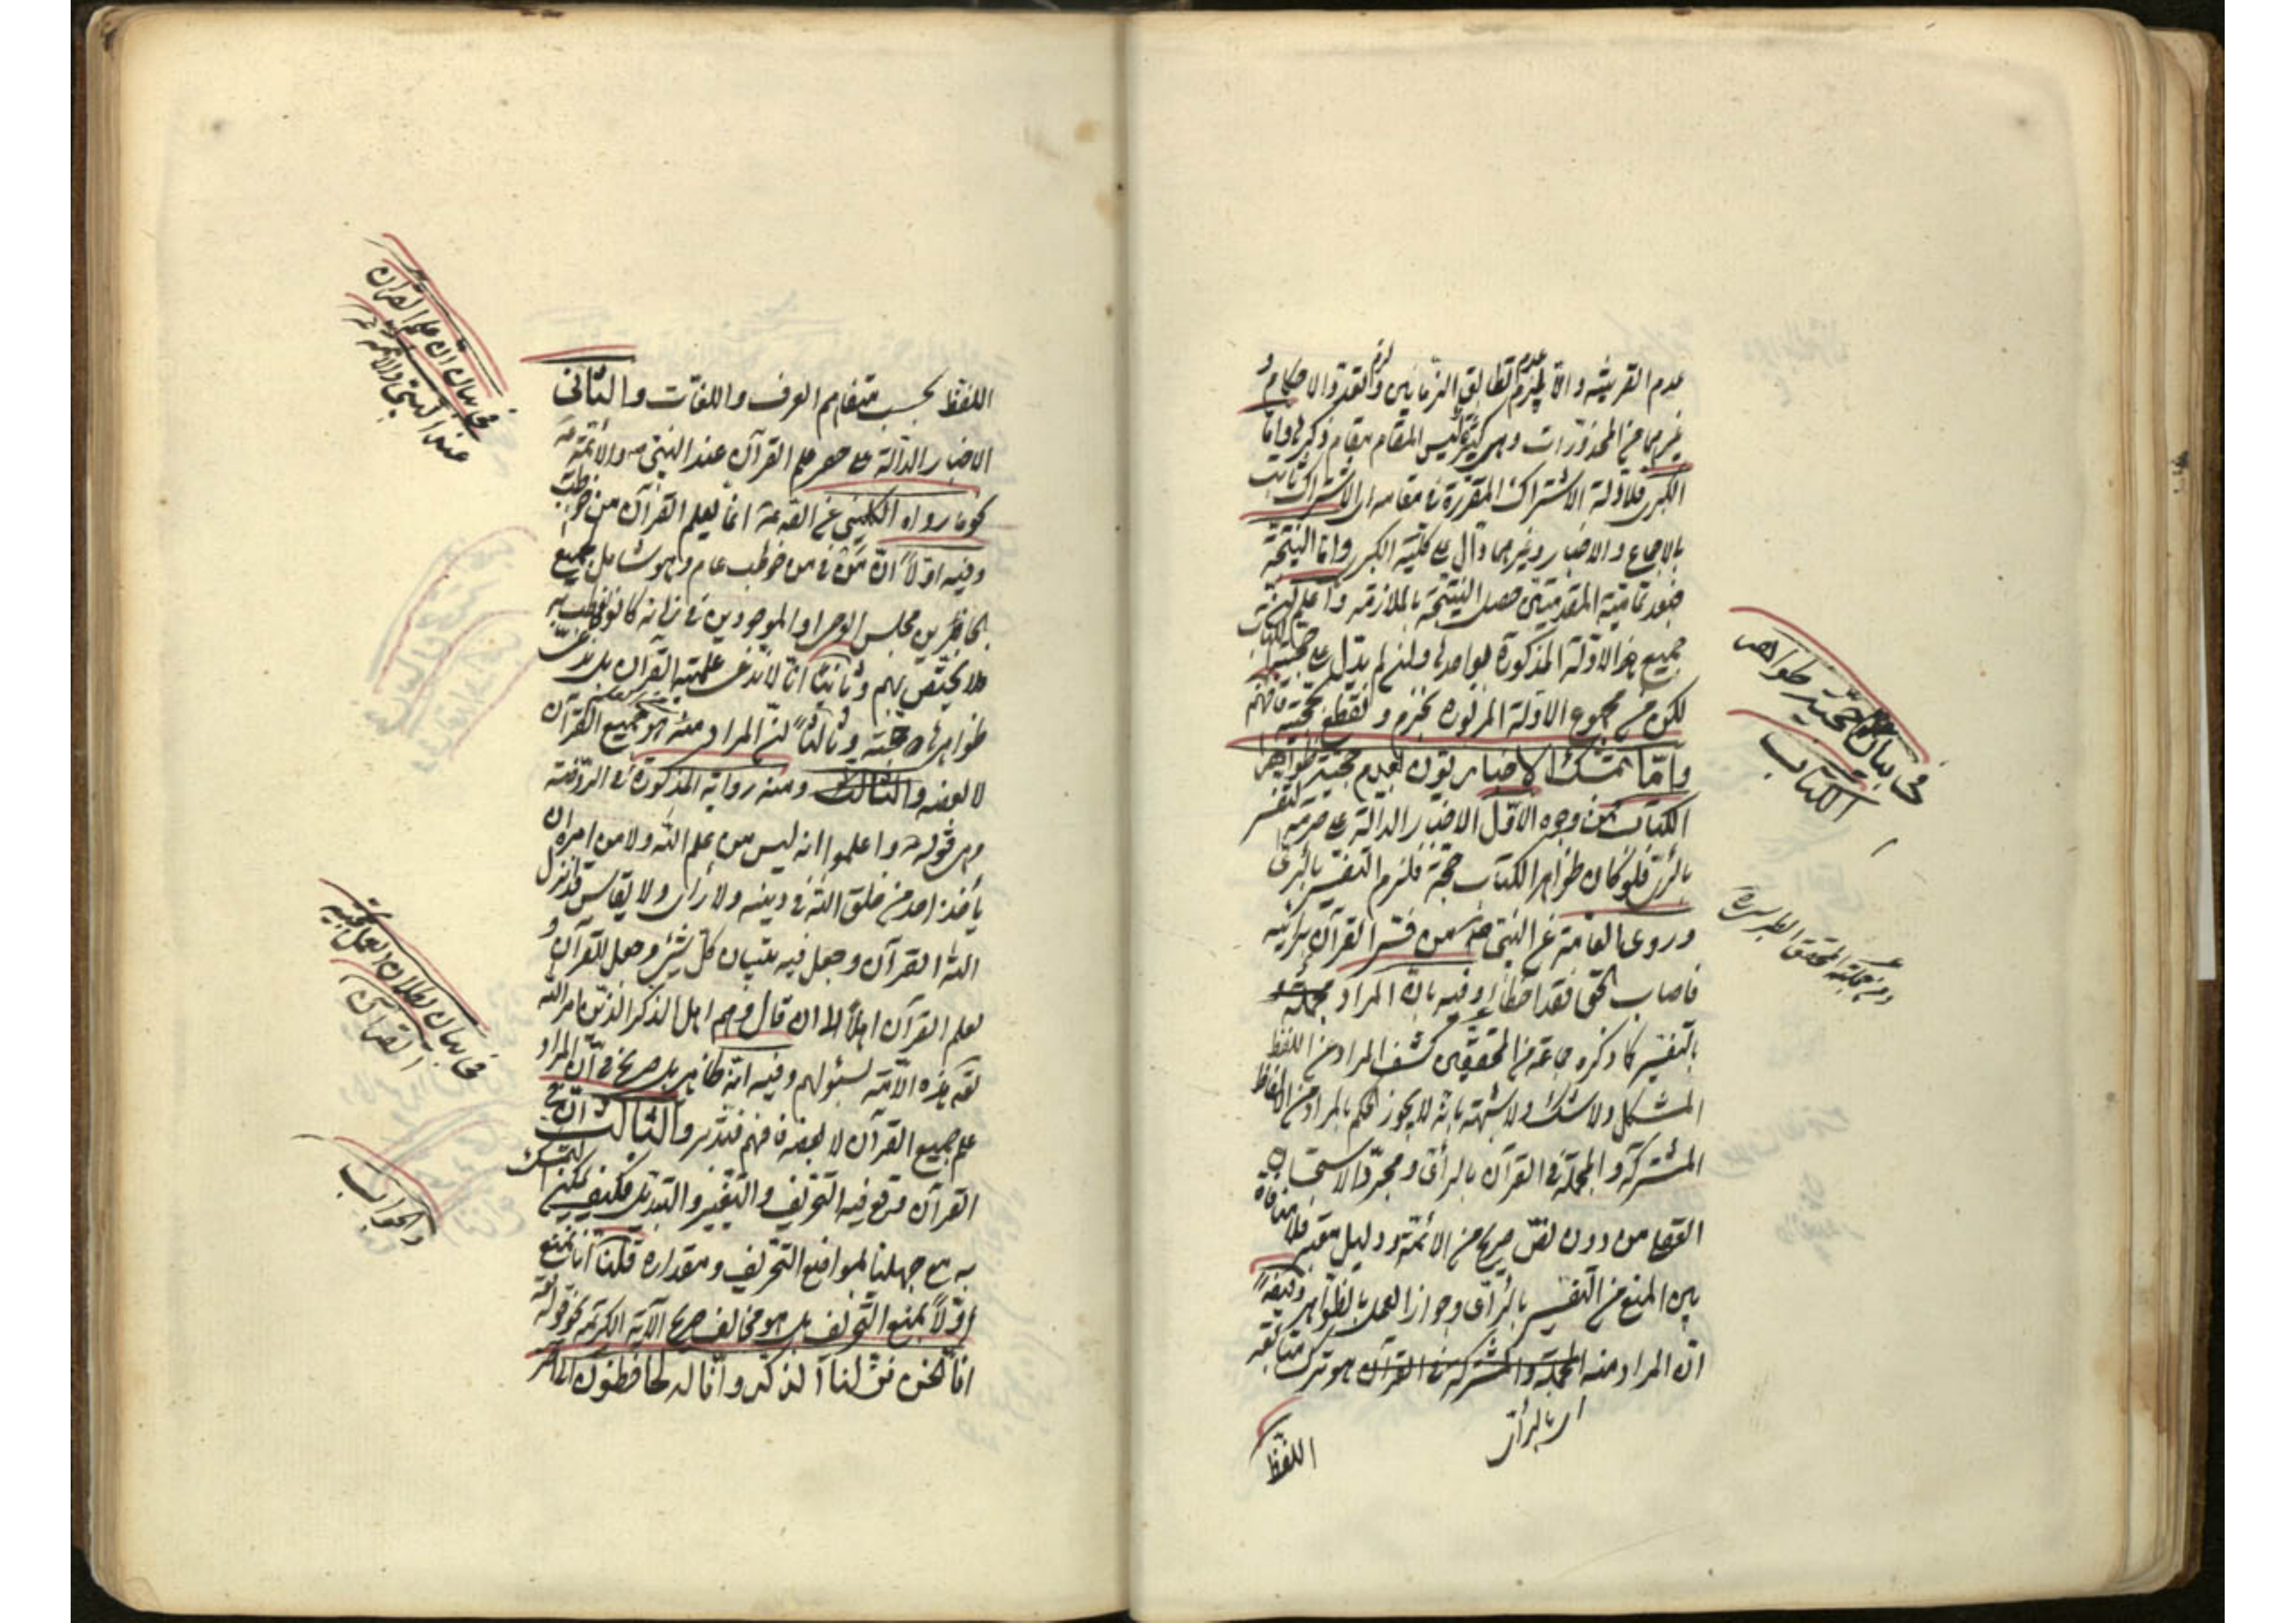 عدم القرينة والا يلزم عدم تطابق الزمانين ولزم القدر والاحكام و
غيرهما من المحذورات وهي كثيرة ليس المقام مقام ذكرها واما
الكبرى فلادلة الاشتراك المقررة في مقامه اي الاشتراك ثابت
بالاجماع والاخبار وغيرهما دال على كلية الكبرى واما النتيجة
فبعد تمامية المقدمتين حصل النتيجة بالملازمة واعلم ان
جميع هذه الادلة المذكورة بواحدها ولئن لم يدل على حجية الكتاب
لكن من مجموع الادلة المزبورة نجزم ونقطع بحجيته فافهم
واما تمسك الاخباريون لعدم حجية ظواهر
الكتاب فمن وجوه الاول الاخبار الدالة على حرمة التفسير
بالرأي فلو كان ظواهر الكتاب حجة فلزم التفسير بالرأي
وروى العامة عن النبي ص من فسر القرآن برأيه
فاصاب الحق فقد اخطأ وفيه بان المراد
بالتفسير كما ذكره جماعة من المحققين كشف المراد عن اللفظ
المشكل ولا شك ولا شبهة بانه لا يجوز الحكم بالمراد من الالفاظ
المشتركة والمجملة في القرآن بالرأي ومجرد الاستحسان
العقل من دون نص صريح من الائمة ودليل معتبر فلا منافاة
بين المنع من التفسير بالرأي وجواز العمل بالظواهر وايضا
ان المراد منه المجملة والمشتركة في القرآن هو ترك متابعة
اي بالرأي
اللفظ
في بيان حجية ظواهر
الكتاب
ومن جملته المحقق الطبرسي ره
اللفظ بحسب متفاهم العرف واللغات والثاني
الاخبار الدالة على حصر علم القرآن عند النبي ص والائمة ع
نحو ما رواه الكليني عن انما يعلم القرآن من خوطب
وفيه اولا ان من في من خوطب عام وهو شامل لجميع
الحاضرين مجلس الوحي او الموجودين في زمانه كانوا
فلا يختص بهم وثانيا انا لا ندعي علمية القرآن بل ندعي
ظواهره حجة وثالثا ان المراد منه هو جميع القرآن
لا بعضه والثالث ومنه رواية المذكورة في الروضة
وهي قوله ع واعلموا انه ليس من علم الله ولا من امره ان
يأخذ احد من خلق الله في دينه ولا رأي ولا يقاس قد انزل
الله القرآن وجعل فيه تبيان كل شيء وجعل للقرآن و
لعلم القرآن اهلا الى ان قال وهم اهل الذكر الذين امر الله
هذه الامة بسئوالهم وفيه انه ظاهر بل صريح في ان المراد
علم جميع القرآن لا بعضه فافهم فتدبر والثالث ان في
القرآن وقع فيه التحريف والتغيير والتبديل فكيف يمكن التمسك
به مع جهلنا بمواضع التحريف ومقداره قلنا انا نمنع
اولا بمنع التحريف بل هو مخالف صريح الآية الكريمة نحو قوله
انا نحن نزلنا الذكر وانا له لحافظون
في بيان ان علم القران
عند النبي والائمة ع
في بيان بطلان العمل
القرآن
والجواب